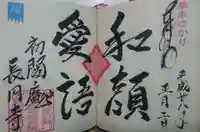 平成十八年
正月二日
和顔
愛語
初閻魔
長円寺